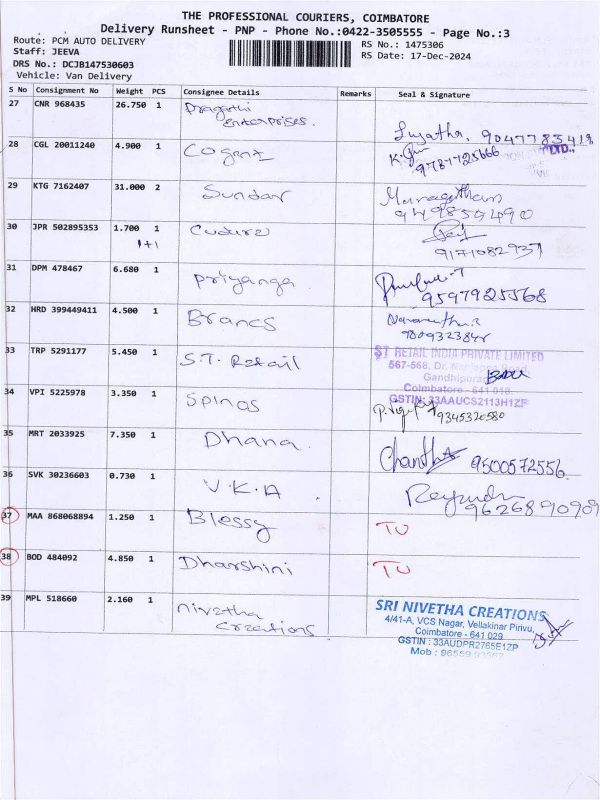 THE PROFESSIONAL COURIERS, COIMBATORE
Delivery Runsheet - PNP - Phone No.:0422-3505555 - Page No.:3
Route: PCM AUTO DELIVERY
RS No.: 1475306
Staff: JEEVA
RS Date: 17-Dec-2024
DRS No.: DCJB147530603
Vehicle: Van Delivery
S No Consignment No Weight PCS Consignee Details Remarks Seal & Signature
27 CNR 968435 26.750 1 Pragathi
Enterprises.
Sujatha. 9047783418
28 CGL 20011240 4.900 1 Cogent
LTD.,
9787725666
29 KTG 7162407 31.000 2 Sundar
9498594490
30 JPR 502895353 1.700 1
1+1
9171082937
31 DPM 478467 6.680 1 Priyanga
9597925568
32 HRD 399449411 4.500 1 Brancs
9809323845
33 TRP 5291177 5.450 1 S.T. Retail
ST RETAIL INDIA PRIVATE LIMITED
567-568, Dr.
Gandhipuram
Coimbatore - 641 018.
GSTIN: 33AAUCS2113H1ZP
34 VPI 5225978 3.350 1 Spinos
9345320580
35 MRT 2033925 7.350 1 Dhana.
9500572556.
36 SVK 30236603 0.730 1 V.K.A
9626890909
37 MAA 868068894 1.250 1 Blessy TU
38 BOD 484092 4.850 1 Dharshini TU
39 MPL 518660 2.160 1 Nivetha
Creations
SRI NIVETHA CREATIONS
4/41-A, VCS Nagar, Vellakinar Pirivu,
Coimbatore - 641 029
GSTIN : 33AUDPR2765E1ZP
Mob :